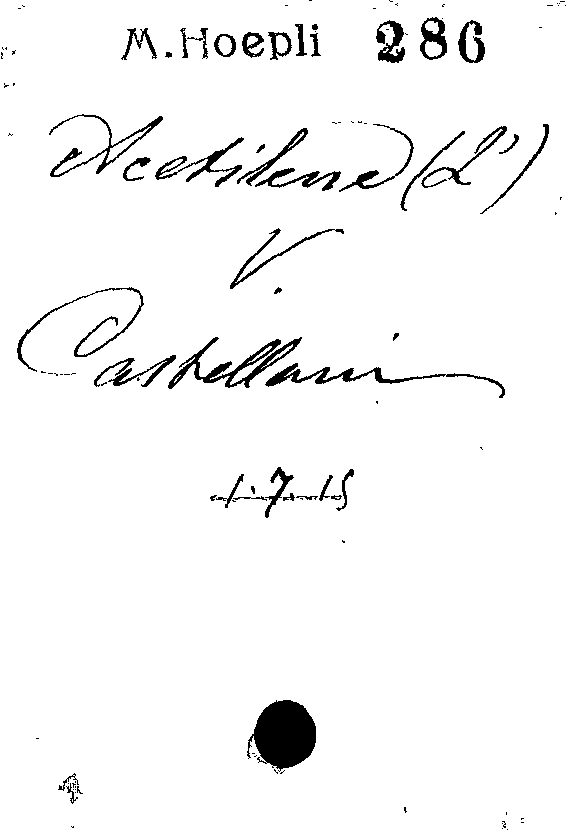 M. Hoepli 286
Acetilene (L')
V.
Castellani
1.7.15